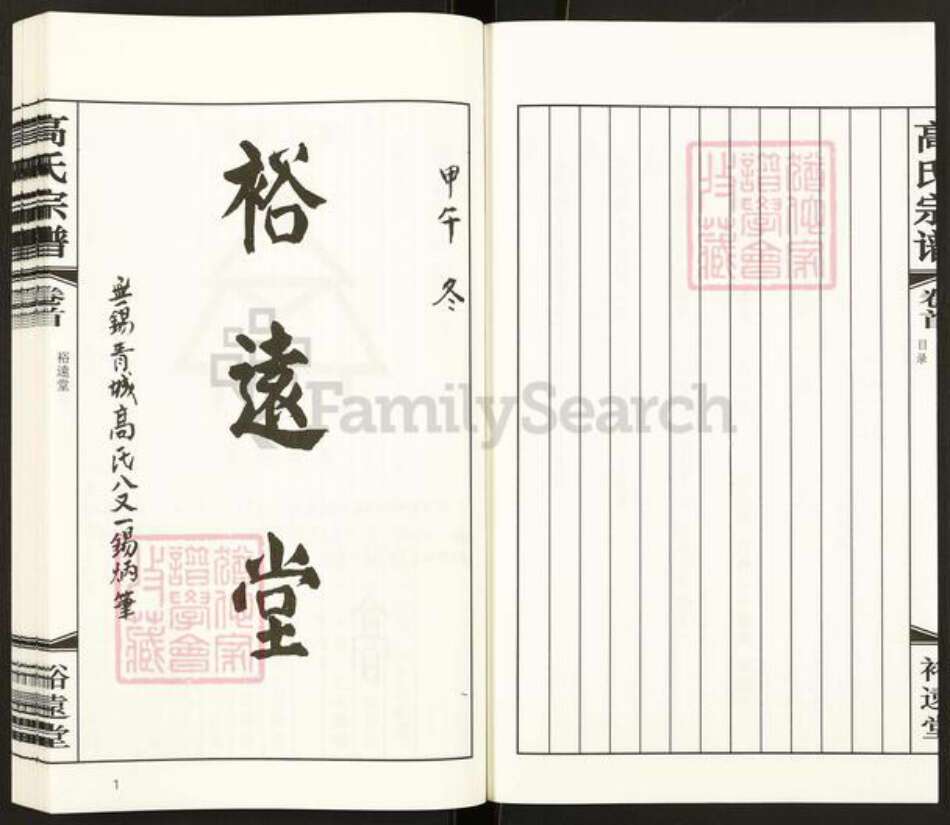 高氏宗谱
卷首
目录
裕遠堂
甲午 冬
裕遠堂
無錫青城高氏八又一錫炳筆
高氏宗谱
卷首
裕遠堂
裕遠堂
1
FamilySearch